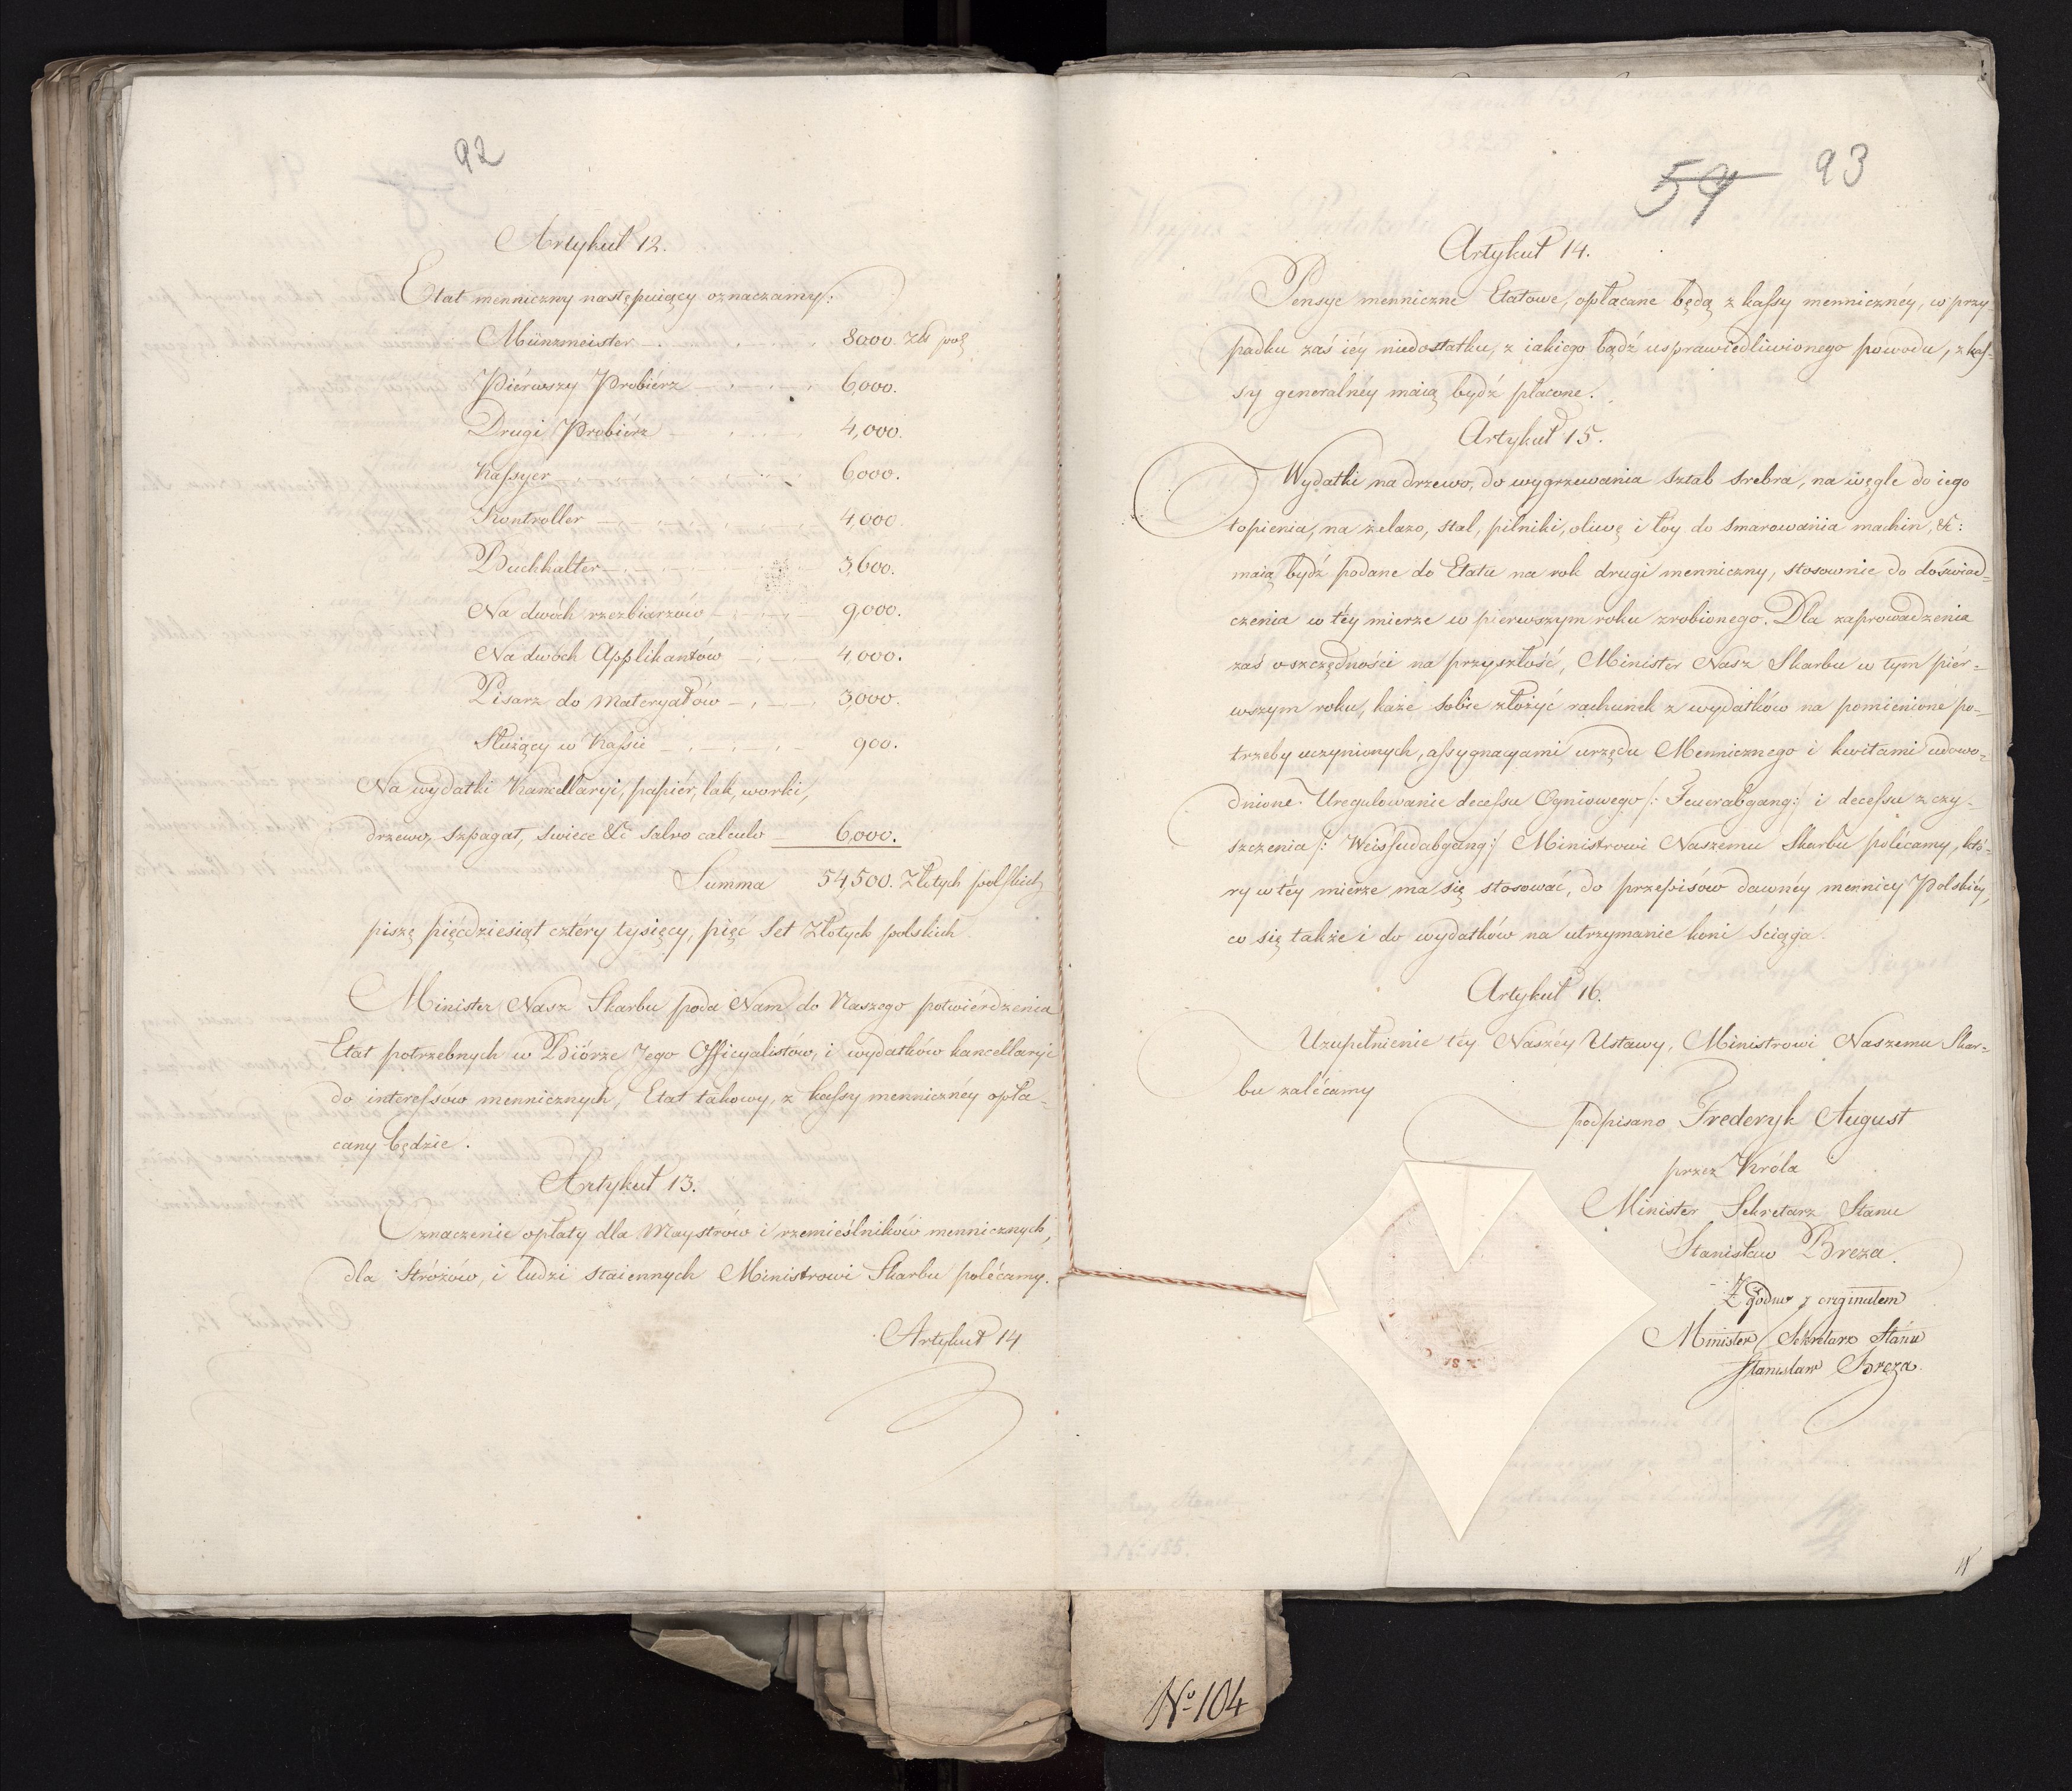 92
Artykuł 12.
Etat menniczny następuiący oznaczamy:
Münzmeister 8000. Złł pol
Piérwszy Probiérz 6,000.
Drugi Probiérz 4,000.
Kassyer 6,000.
Kontroller 4,000
Buchhalter 3,600.
Na dwóch rzezbiarzów 9,000.
Na dwóch Applikantów 4,000.
Pisarz do Materyałów 3,000.
Służący w Kassie 900.
Na wydatki Kancellaryi, papiér, lak, worki,
drzewo, szpagat, swiece &c salvo calculo 6,000.
Summa 54,500. Złotych polskich
piszę pięćdziesiąt cztéry tysięcy, pięć Set Złotych polskich.
Minister Nasz Skarbu poda Nam do Naszego potwiérdzenia
Etat potrzebnych w Biórze Jego Officyalistów, i wydatków kancellaryi
do interessów mennicznych, Etat takowy, z kassy mennicznéy opła-
cany będzie.
Artykuł 13.
Oznaczenie opłaty dla Maystrów i rzemieślników mennicznych,
dla Stróżów, i ludzi staiennych Ministrowi Skarbu polécamy.
Artykuł 14
59 93
Artykuł 14.
Pensye menniczne Etatowe, opłacane będą z kassy mennicznéy, w przy-
padku zaś iéy niedostatku, z iakiego bądź usprawiedliwionego powodu, z kas-
sy generalnéy maią bydź płacone.
Artykuł 15.
Wydatki na drzewo, do wygrzewania sztab srebra, na węgle do iego
topienia, na żelazo, stal, pilniki, oliwę i łóy do smarowania machin, &c:
maią bydź podane do Etatu na rok drugi menniczny, stosownie do doświad-
czenia w téy mierze w pierwszym roku zrobionego. Dla zaprowadzenia
zaś oszczędności na przyszłość, Minister Nasz Skarbu w tym piér-
wszym roku, każe sobie złożyć rachunek z wydatków na pomienione po-
trzeby uczynionych, assygnacyami urzędu Mennicznego i kwitami udowo-
dnione. Uregulowanie decessu Ogniowego /: Feuerabgang:/ i decessu z czy-
szczenia /: Weissudabgang:/ Ministrowi Naszemu Skarbu polécamy, któ-
ry w téy mierze ma się stosować, do przepisów dawnéy mennicy Polskiéy,
co się także i do wydatków na utrzymanie koni ściąga.
Artykuł 16.
Uzupełnienie téy Naszéy Ustawy, Ministrowi Naszemu Skar-
bu zalécamy
podpisano Frederyk August
przez Króla
Minister Sekretarz Stanu
Stanisław Breza.
Zgodno z oryginałem
Minister Sekretarz Stanu
Stanisław Breza.
No 104